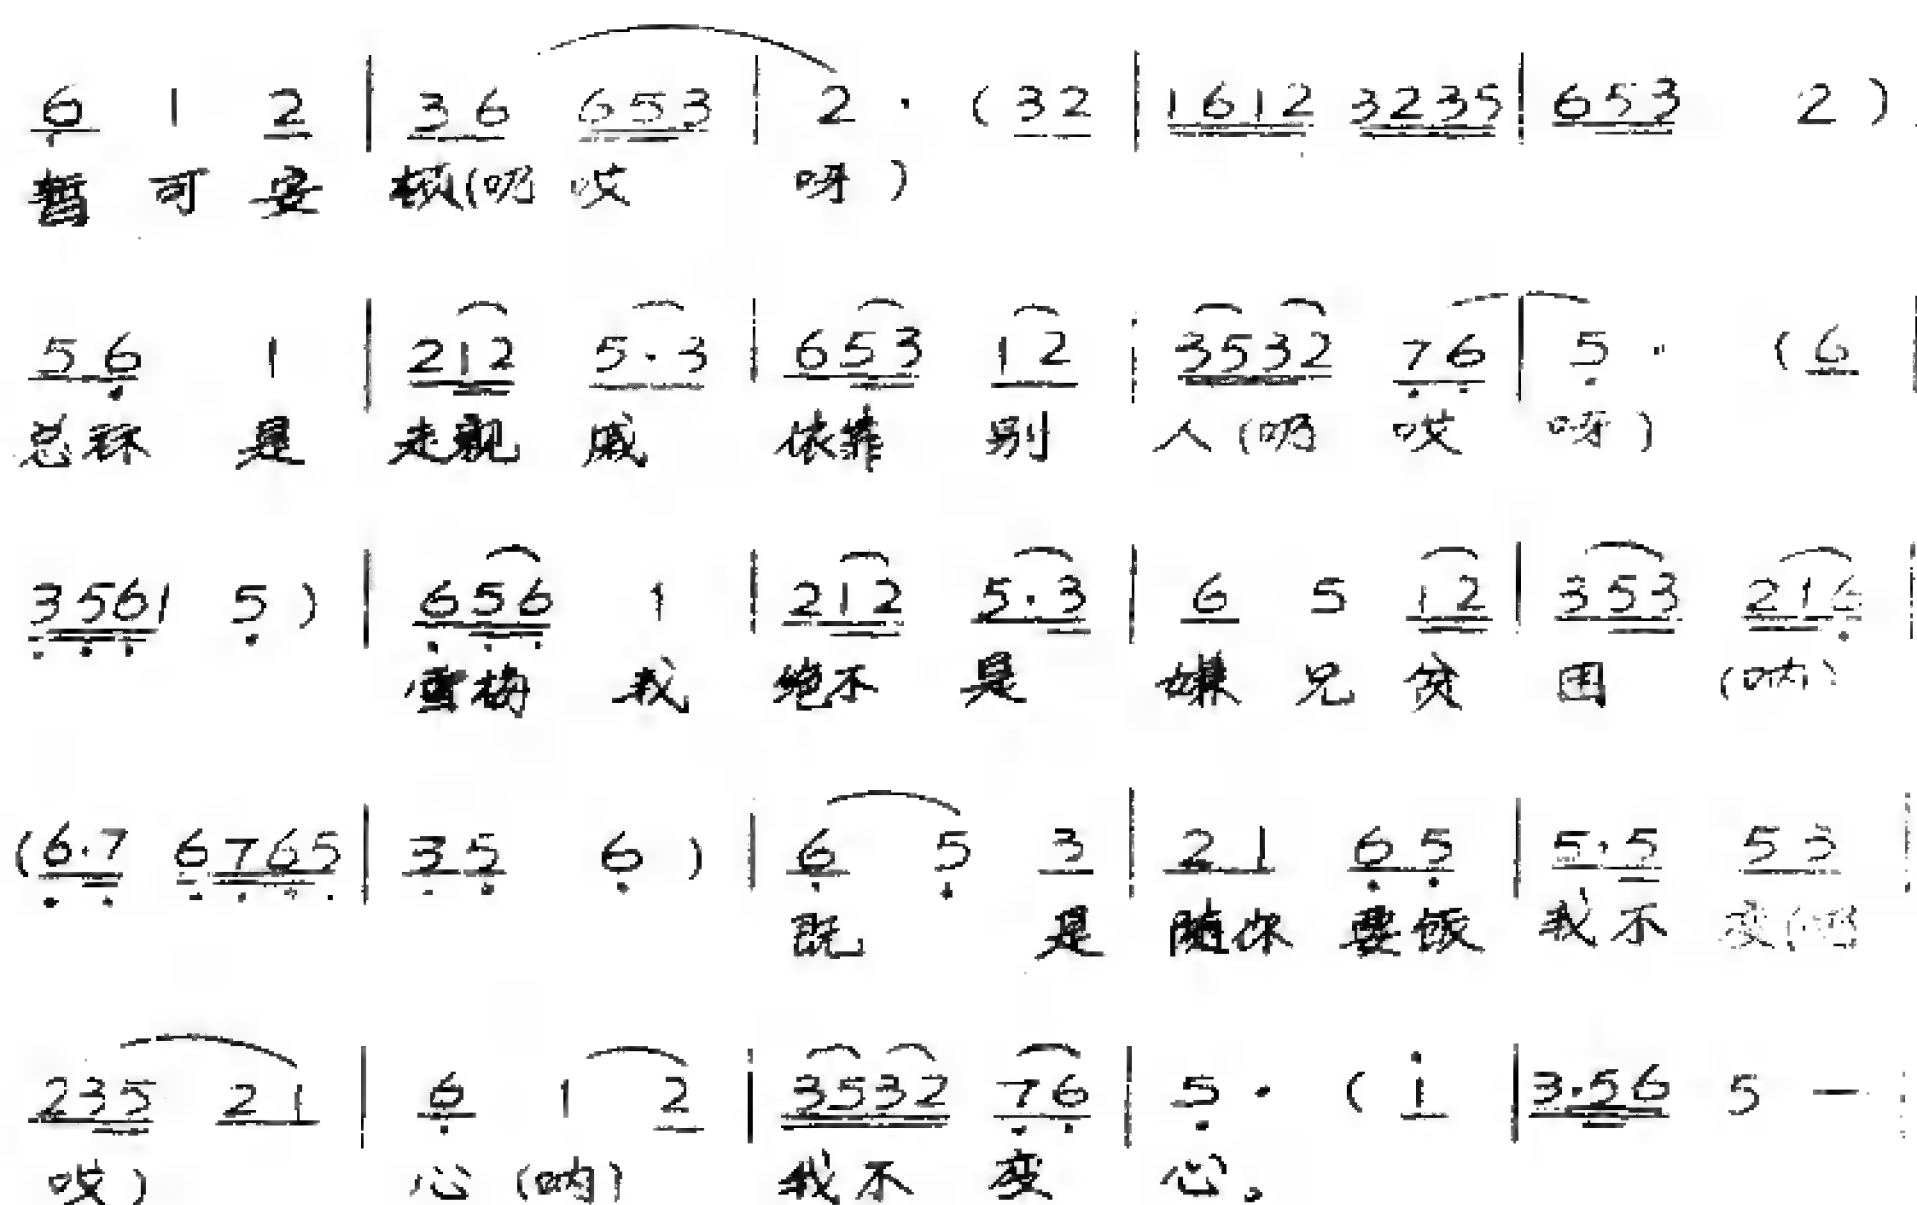 6 1 2 | 36 653 | 2 · ( 32 | 1612 3235 | 653 2 )
暂 可 安 顿(呀 哎 呀 )
56 1 | 212 5·3 | 653 12 | 3532 76 | 5 · ( 6 |
总称 是 走親 戚 依靠 别 人 (呀 哎 呀 )
3561 5 ) | 656 1 | 212 5·3 | 6 5 12 | 353 216 |
雪梅 我 绝不 是 嫌 兄 贫 困 (呐)
(6·7 6765 | 35 6 ) | 6 5 3 | 21 65 | 5·5 53 |
既 是 随你 要饭 我不 变(呀
235 21 | 6 1 2 | 3532 76 | 5 · ( 1 | 3·56 5 —
哎 ) 心 (呐) 我不 变 心。